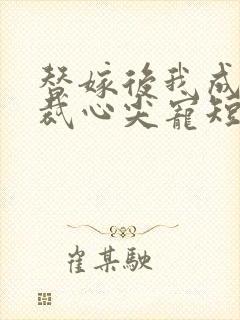 替嫁後我成
裁心尖寵短
崔某駛